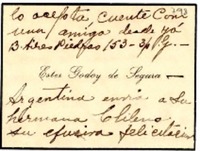 298
lo acepta, cuente con
una amiga desde ya
B. Aires Piedras 153-2º P. J.
Ester Godoy de Segura
Argentina envia a su
hermana Chilena
su efusiva felicitación